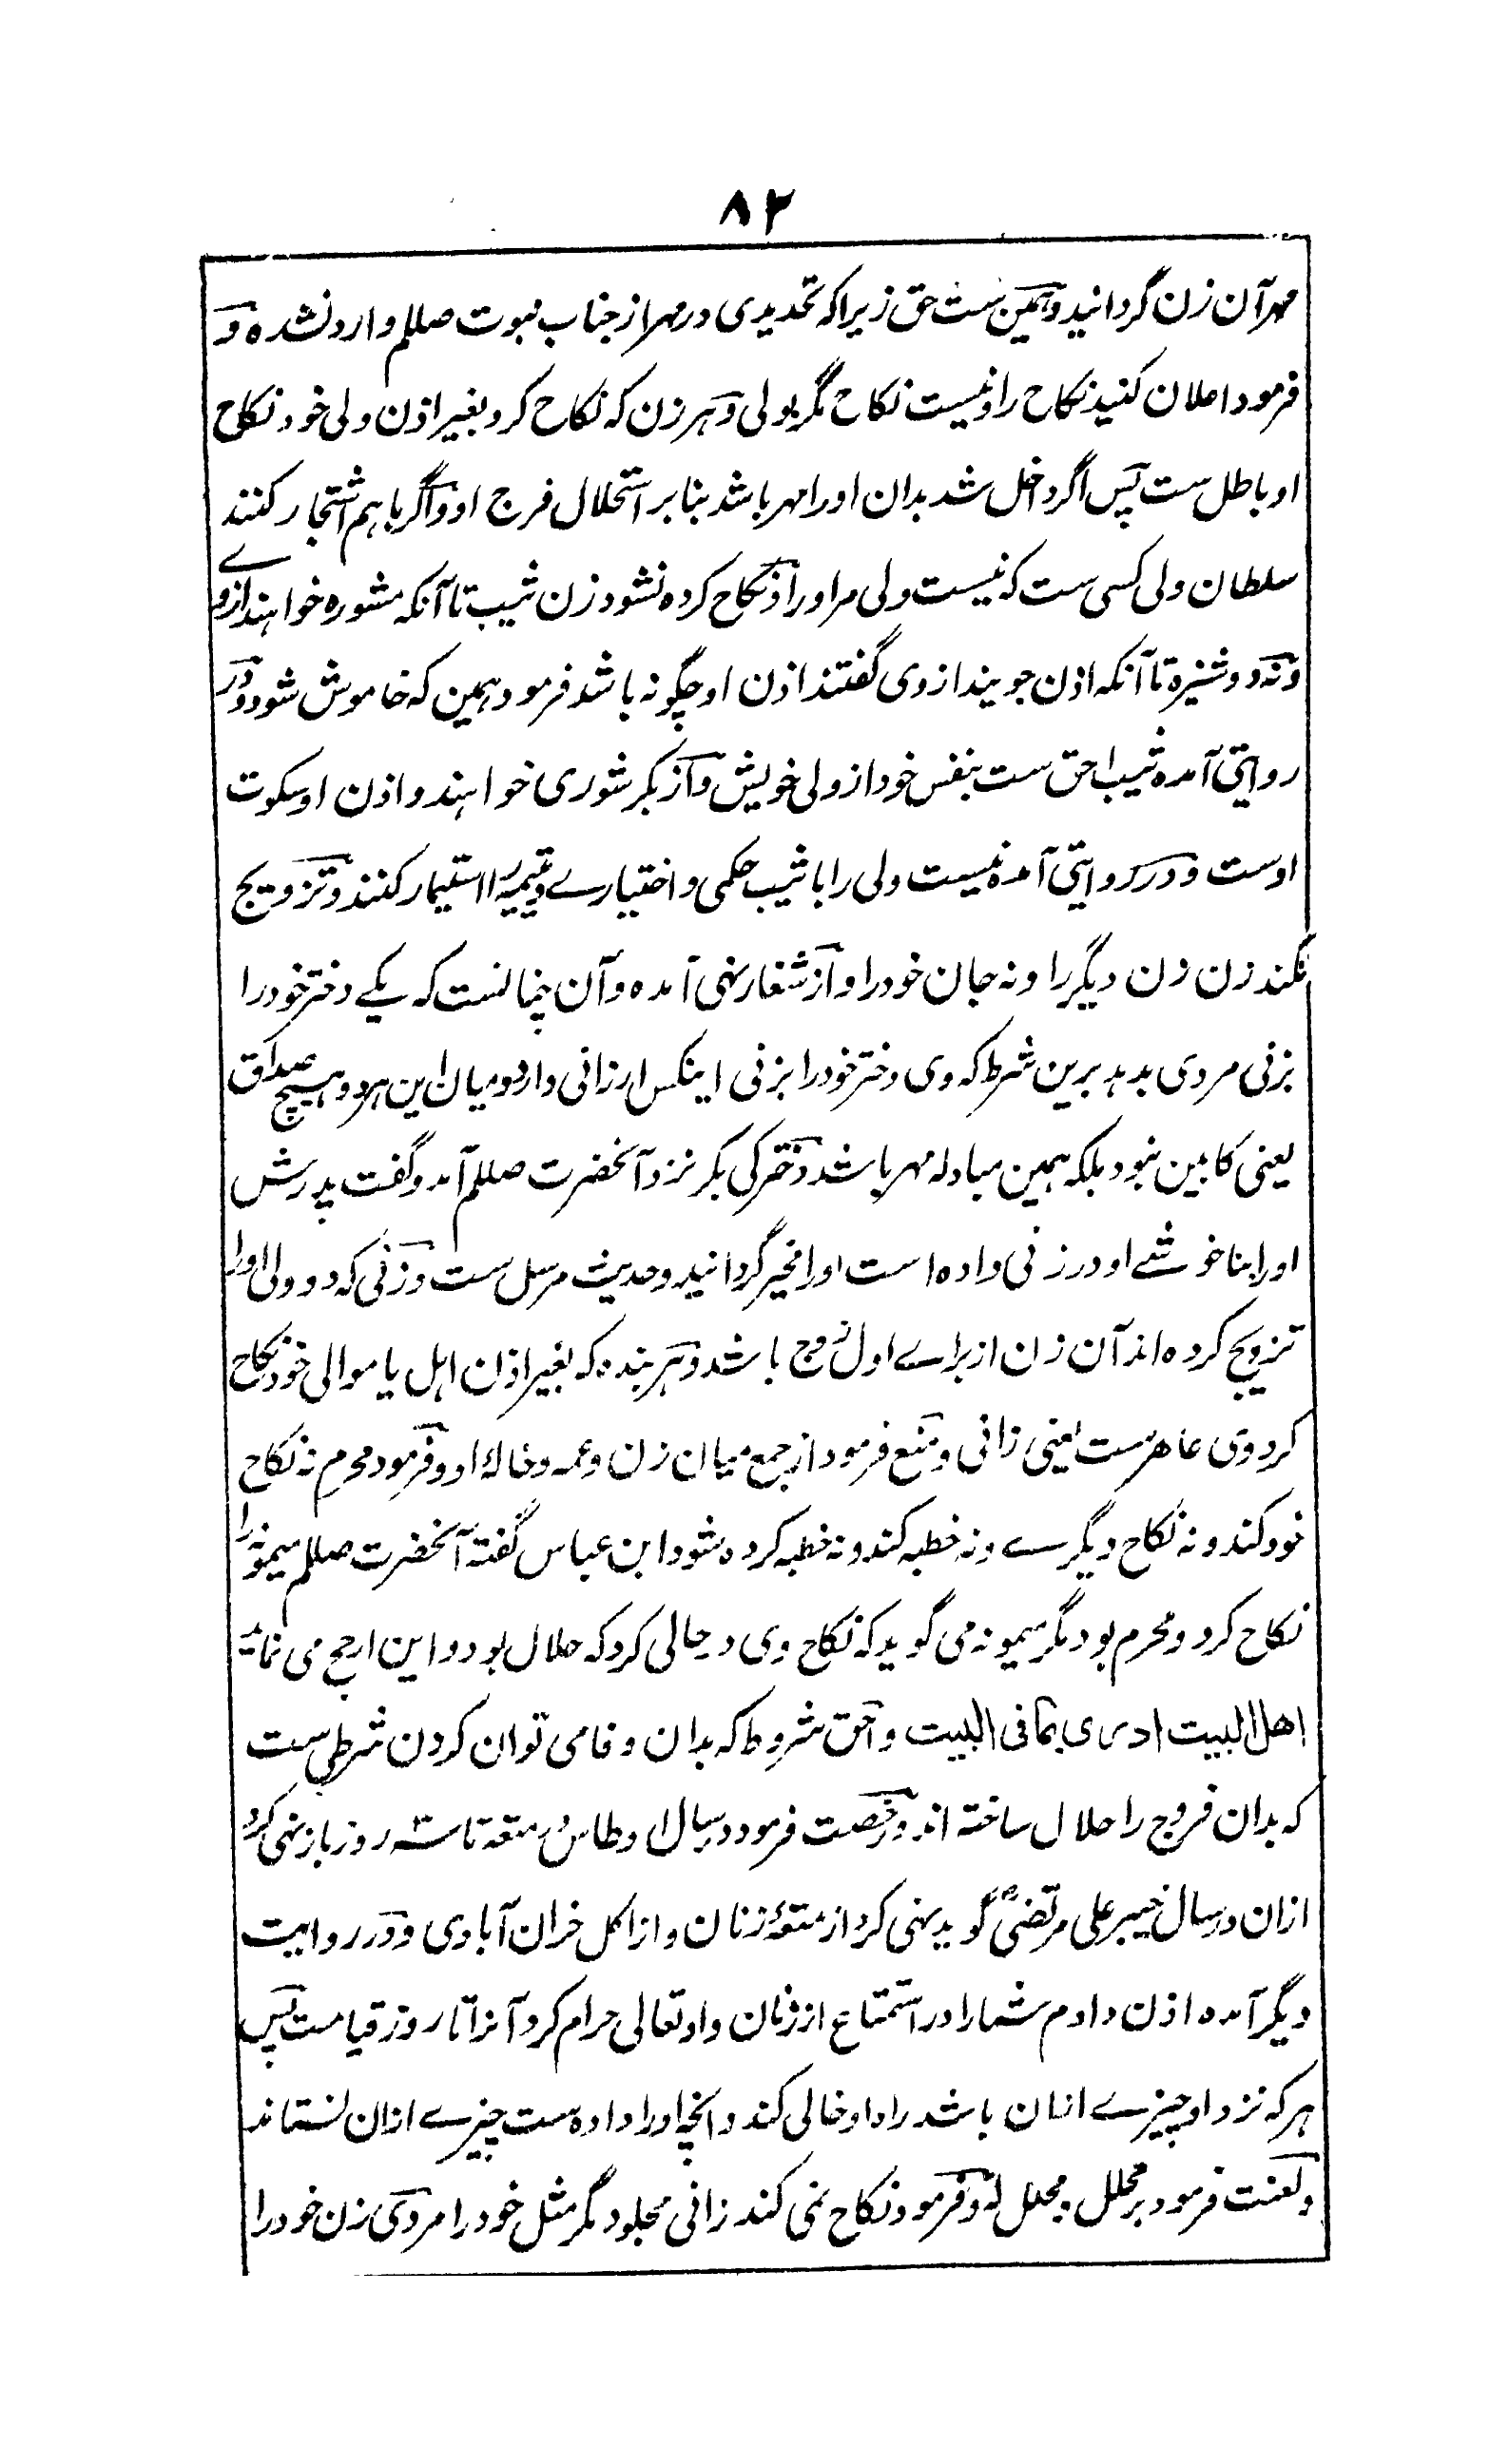 ۸۲
مہر آن زن گردانید وہمین ست حق زیرا کہ تحدیدی در مہر از جناب نبوت صللم وارد نشدہ و
فرمود اعلان کنید نکاح را و نیست نکاح مگر بولی و ہر زن کہ نکاح کرد بغیر اذن ولی خود نکاح
او باطل ست پس اگر داخل شد بدان او را مہر باشد بنا بر استحلال فرج او و اگر باہم اشتجار کنند
سلطان ولی کسی ست کہ نیست ولی مر او را و نکاح کردہ نشود زن ثیب تا آنکہ مشورہ خواہند از وے
و نہ دوشیزہ تا آنکہ اذن جویند از وی گفتند اذن او چگونہ باشد فرمود ہمین کہ خاموش شود و در
روایتی آمدہ ثیب احق ست بنفس خود از ولی خویش و از بکر شوری خواہند و اذن او سکوت
اوست و در روایتی آمدہ نیست ولی را با ثیب حکمی و اختیارے و یتیمہ را استیمار کنند و تزویج
نکند زن زن دیگر را و نہ جان خود را و از شغار نہی آمدہ و آن چنانست کہ یکے دختر خود را
بزنی مردی بدہد برین شرط کہ وی دختر خود را بزنی اینکس ارزانی دارد و میان این ہر دو ہیچ صداق
یعنی کابین نبود بلکہ ہمین مبادلہ مہر باشد و دخترکی بکر نزد آنحضرت صللم آمد و گفت پدرش
او را بناخوشے او در زنی دادہ است او را مخیر گردانید و حدیث مرسل ست و زنی کہ دو ولی او را
تزویج کردہ اند آن زن از براے اول زوج باشد و ہر بندہ کہ بغیر اذن اہل یا موالی خود نکاح
کرد وی عاہر ست یعنی زانی و منع فرمود از جمع میان زن و عمہ و خالۂ او و فرمود محرم نہ نکاح
خود کند و نہ نکاح دیگرے و نہ خطبہ کند و نہ خطبہ کردہ شود ابن عباس گفتہ آنحضرت صللم میمونہ را
نکاح کرد و محرم بود مگر میمونہ می گوید کہ نکاح وی در حالی کرد کہ حلال بود و این ارجح می نماید
اهل البیت ادری بما فی البیت و احق شروط کہ بدان وفا می توان کردن شرطی ست
کہ بدان فروج را حلال ساختہ اند و رخصت فرمود در سال اوطاس در متعہ تا سہ روز باز نہی کرد
ازان در سال خیبر علی مرتضیؓ گوید نہی کرد از متعۂ زنان و از اکل خران آبادی و در روایت
دیگر آمدہ اذن دادم شما را در استمتاع از زنان و او تعالی حرام کرد آنرا تا روز قیامت پس
ہر کہ نزد او چیزے ازنان باشد راہ او خالی کند و آنچہ او را دادہ ست چیزے ازان نستاند
و لعنت فرمود بر محلل و محلل لہ و فرمود نکاح نمی کند زانی مجلود مگر مثل خود را مردی زن خود را